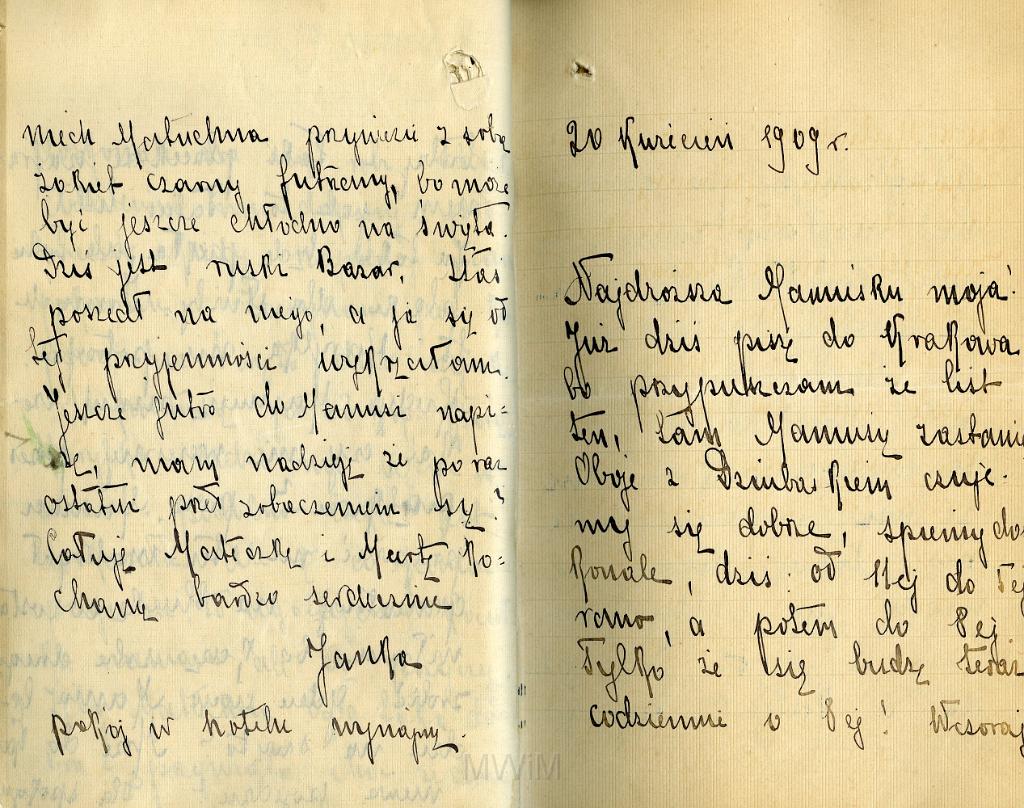 niech Matuchna przywiezie z sobą
żakiet czarny futrzany, bo może
być jeszcze chłodno na święta.
Dziś jest ruski Bazar, Staś
poszedł na niego, a ja się od
tej przyjemności wykręciłam.
Jeszcze jutro do Mamusi napi-
szę, mam nadzieję że po raz
ostatni przed zobaczeniem się?
Całuję Mateczkę i Martę ko-
chaną bardzo serdecznie
Janka
pokój w hotelu wynajmę.
20 Kwiecień 1909 r.
Najdroższa Mamusiku moja!
Już dziś piszę do Krakowa
bo przypuszczam że list
ten, tam Mamusię zastanie
Oboje z Dziubaskiem czuje-
my się dobrze, śpiemy dos-
konale, dziś od 11ej do 7ej
rano, a potem do 8ej.
Tylko że się budzę teraz
codziennie o 8ej! Wczoraj
MWiM